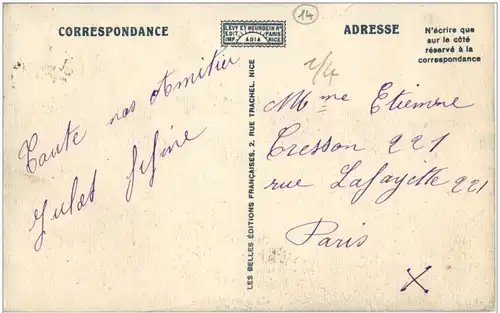 CORRESPONDANCE
LÉVY ET NEURDEIN Rs
ÉDIT. PARIS
IMP. ADIA NICE
14
ADRESSE
N'écrire que
sur le côté
réservé à la
correspondance
1/4
Toute nos Amitier
Jules
LES BELLES ÉDITIONS FRANÇAISES, 2, RUE TRACHEL, NICE
Mme Etienne
Cresson 221
rue Lafayette 221
Paris
X